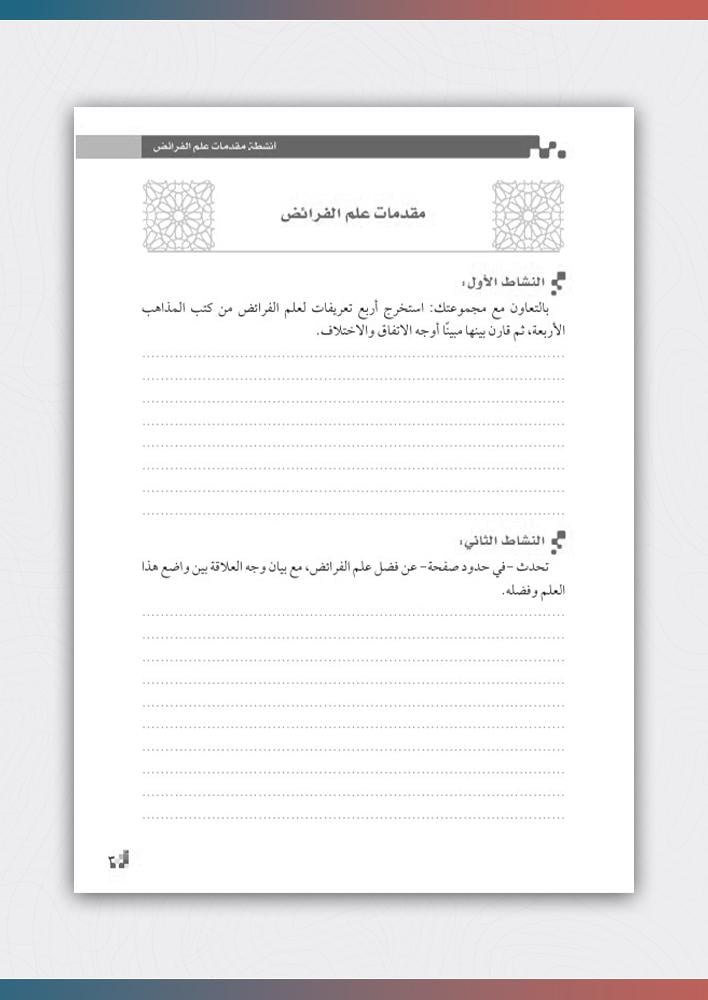 أنشطة مقدمات علم الفرائض
مقدمات علم الفرائض
النشاط الأول:
بالتعاون مع مجموعتك: استخرج أربع تعريفات لعلم الفرائض من كتب المذاهب
الأربعة، ثم قارن بينها مبينًا أوجه الاتفاق والاختلاف.
النشاط الثاني:
تحدث -في حدود صفحة- عن فضل علم الفرائض، مع بيان وجه العلاقة بين واضع هذا
العلم وفضله.
٣